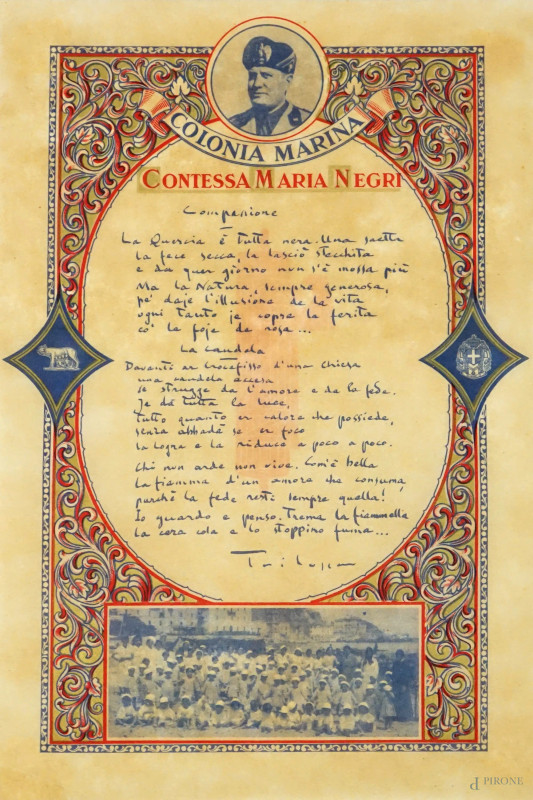 COLONIA MARINA
CONTESSA MARIA NEGRI
Compassione
La Quercia è tutta nera. Una saetta
la fece secca, la lasciò stecchita
e da quer giorno non s'è mossa più
Ma la Natura, sempre generosa,
pe' daje l'illusione de la vita
ogni tanto je copre la ferita
co' le foje de rosa...
La Candela
Davanti ar Crocefisso d'una Chiesa
una candela accesa
se strugge da l'amore e da la fede.
Je dà tutta la luce,
tutto quanto er calore che possiede,
senza abbadà se er foco
la logra e la riduce a poco a poco.
Chi non arde non vive. Com'è bella
la fiamma d'un amore che consuma,
purchè la fede resti sempre quella!
Io guardo e penso. Trema la fiammella
la cera cola e lo stoppino fuma...
Trilussa
PIRONE